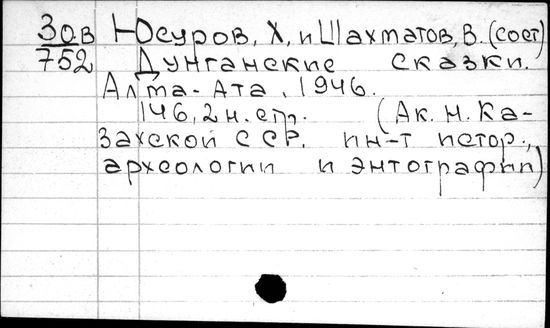 30.в Юсуров, Х. и Шахматов, В. (сост)
752 Дунганские сказки.
Алма-Ата, 1946.
146, 2 н. стр. (Ак. н. Ка-
захской ССР. ин-т истор.,
археологии и энтографии)